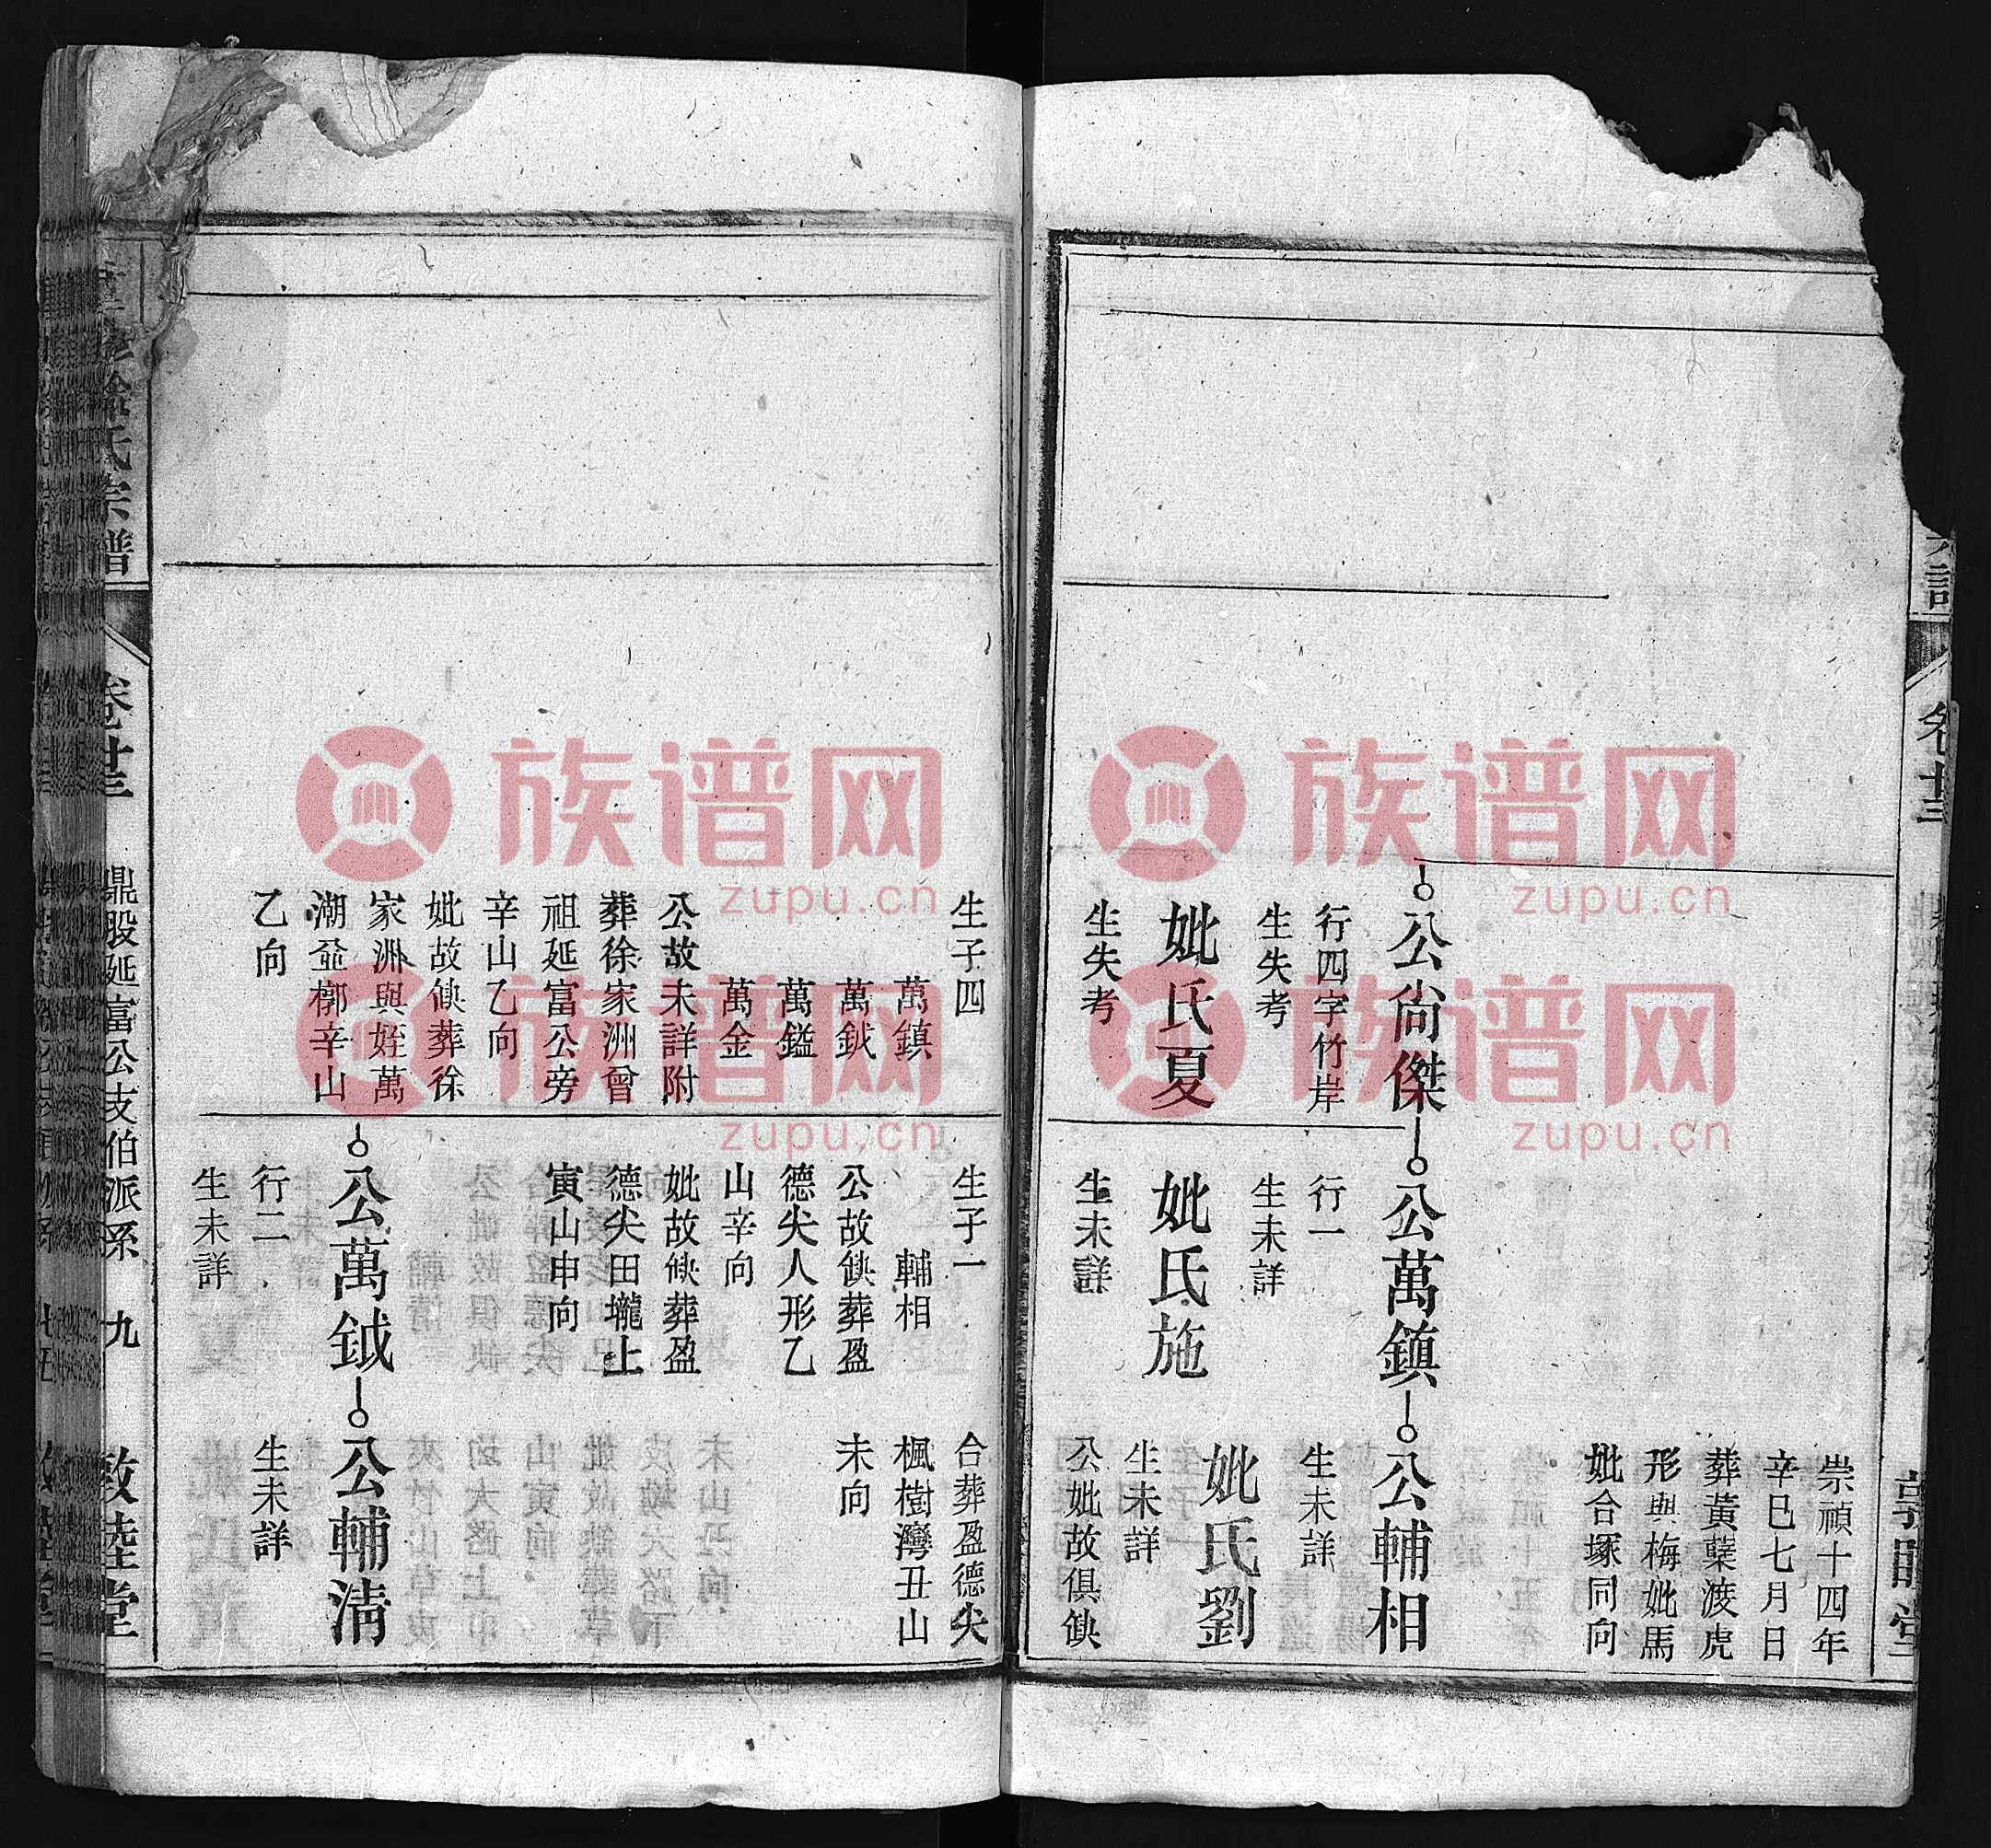 崇禎十四年
辛巳七月日
葬黃櫱渡虎
形與梅妣馬
妣合塚同向
公尚傑
行四字竹岸
生失考
妣氏夏
生失考
公萬鎮
行一
生未詳
妣氏施
生未詳
公輔相
生未詳
妣氏劉
生未詳
公妣故俱缺
生子四
萬鎮
萬鉞
萬鎰
萬金
公故未詳附
葬徐家洲曾
祖延富公旁
辛山乙向
妣故缺葬徐
家洲與姪萬
潮並槨辛山
乙向
生子一
輔相
公故缺葬盈
德尖人形乙
山辛向
妣故缺葬盈
德尖田壠上
寅山申向
合葬盈德尖
楓樹灣丑山
未向
公萬鉞
行二
生未詳
公輔清
生未詳
氏宗譜
卷廿三
鼎股延富公支伯派系
九
敦睦堂
族谱网
zupu.cn
族谱网
zupu.cn
族谱网
zupu.cn
族谱网
zupu.cn